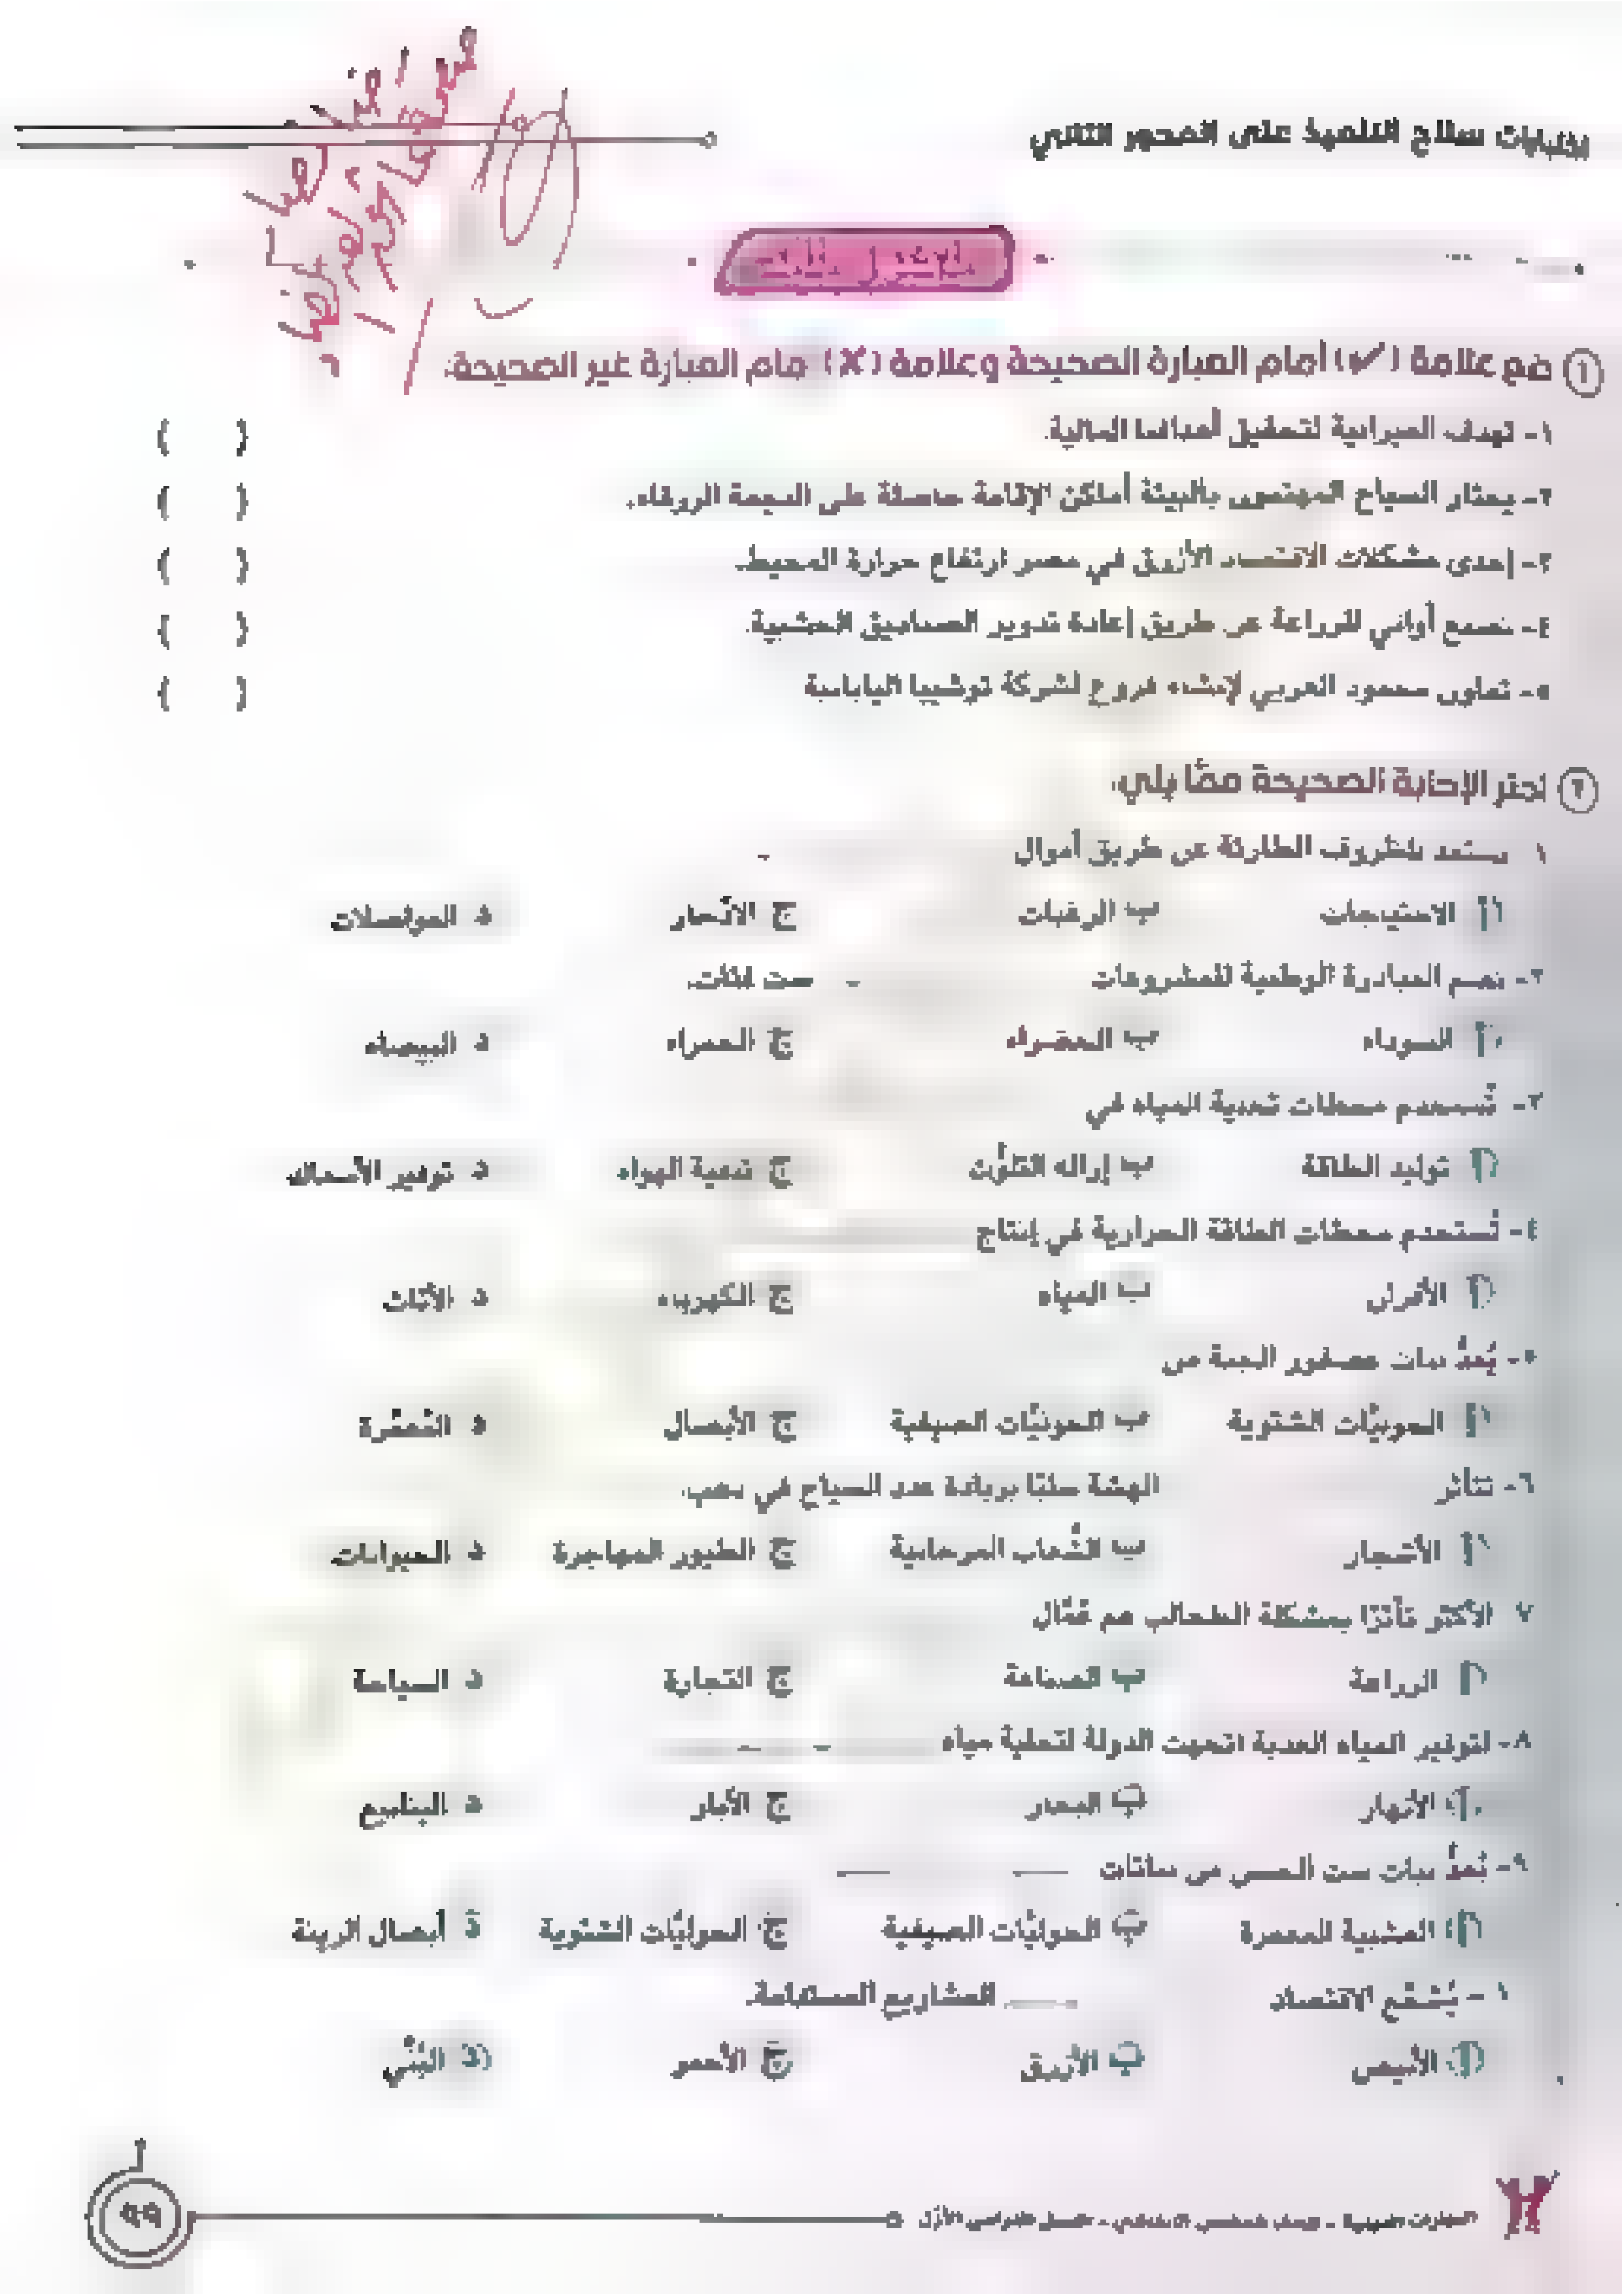 سلاح التلميذ على المحور الثاني
١ ضع علامة (✓) أمام العبارة الصحيحة وعلامة (✗) أمام العبارة غير الصحيحة:
١- تهدف الميزانية لتحقيق أهدافنا المالية. ( )
٢- يختار السياح المهتمون بالبيئة أماكن الإقامة حاصلة على النجمة الزرقاء. ( )
٣- إحدى مشكلات الاقتصاد الأزرق في مصر ارتفاع حرارة المحيط. ( )
٤- نصنع أواني للزراعة عن طريق إعادة تدوير الصناديق الخشبية. ( )
٥- تعاون محمود العربي لإنشاء فروع لشركة توشيبا اليابانية ( )
٢ اختر الإجابة الصحيحة ممَّا يلي:
١ نستعد للظروف الطارئة عن طريق أموال
أ الاحتياجات ب الرغبات ج الادِّخار د المواصلات
٢- تضم المبادرة الوطنية للمشروعات ست فئات.
أ السوداء ب الخضراء ج الحمراء د البيضاء
٣- تُستخدم محطات تنقية المياه في
أ توليد الطاقة ب إزالة التلوُّث ج تنقية الهواء د توفير الأسماك
٤- تُستخدم محطات الطاقة الحرارية في إنتاج
أ الأفران ب المياه ج الكهرباء د الأثاث
٥- يُعدُّ نبات عصفور الجنة من
أ الحوليَّات الشتوية ب الحوليَّات الصيفية ج الأبصال د المُعمَّرة
٦- تتأثر الهشة سلبًا بزيادة عدد السياح في دهب.
أ الأشجار ب الشُّعاب المرجانية ج الطيور المهاجرة د الحيوانات
٧ الأكثر تأثرًا بمشكلة الطحالب هم عُمَّال
أ الزراعة ب الصناعة ج التجارة د السياحة
٨- لتوفير المياه العذبة اتجهت الدولة لتحلية مياه
أ الأنهار ب البحار ج الآبار د الينابيع
٩- يُعدُّ نبات ست الحسن من نباتات
أ العشبية المعمرة ب الحوليَّات الصيفية ج الحوليَّات الشتوية د أبصال الزينة
١٠- يُشجِّع الاقتصاد المشاريع المستدامة.
أ الأبيض ب الأزرق ج الأحمر د البُنِّي
٩٩